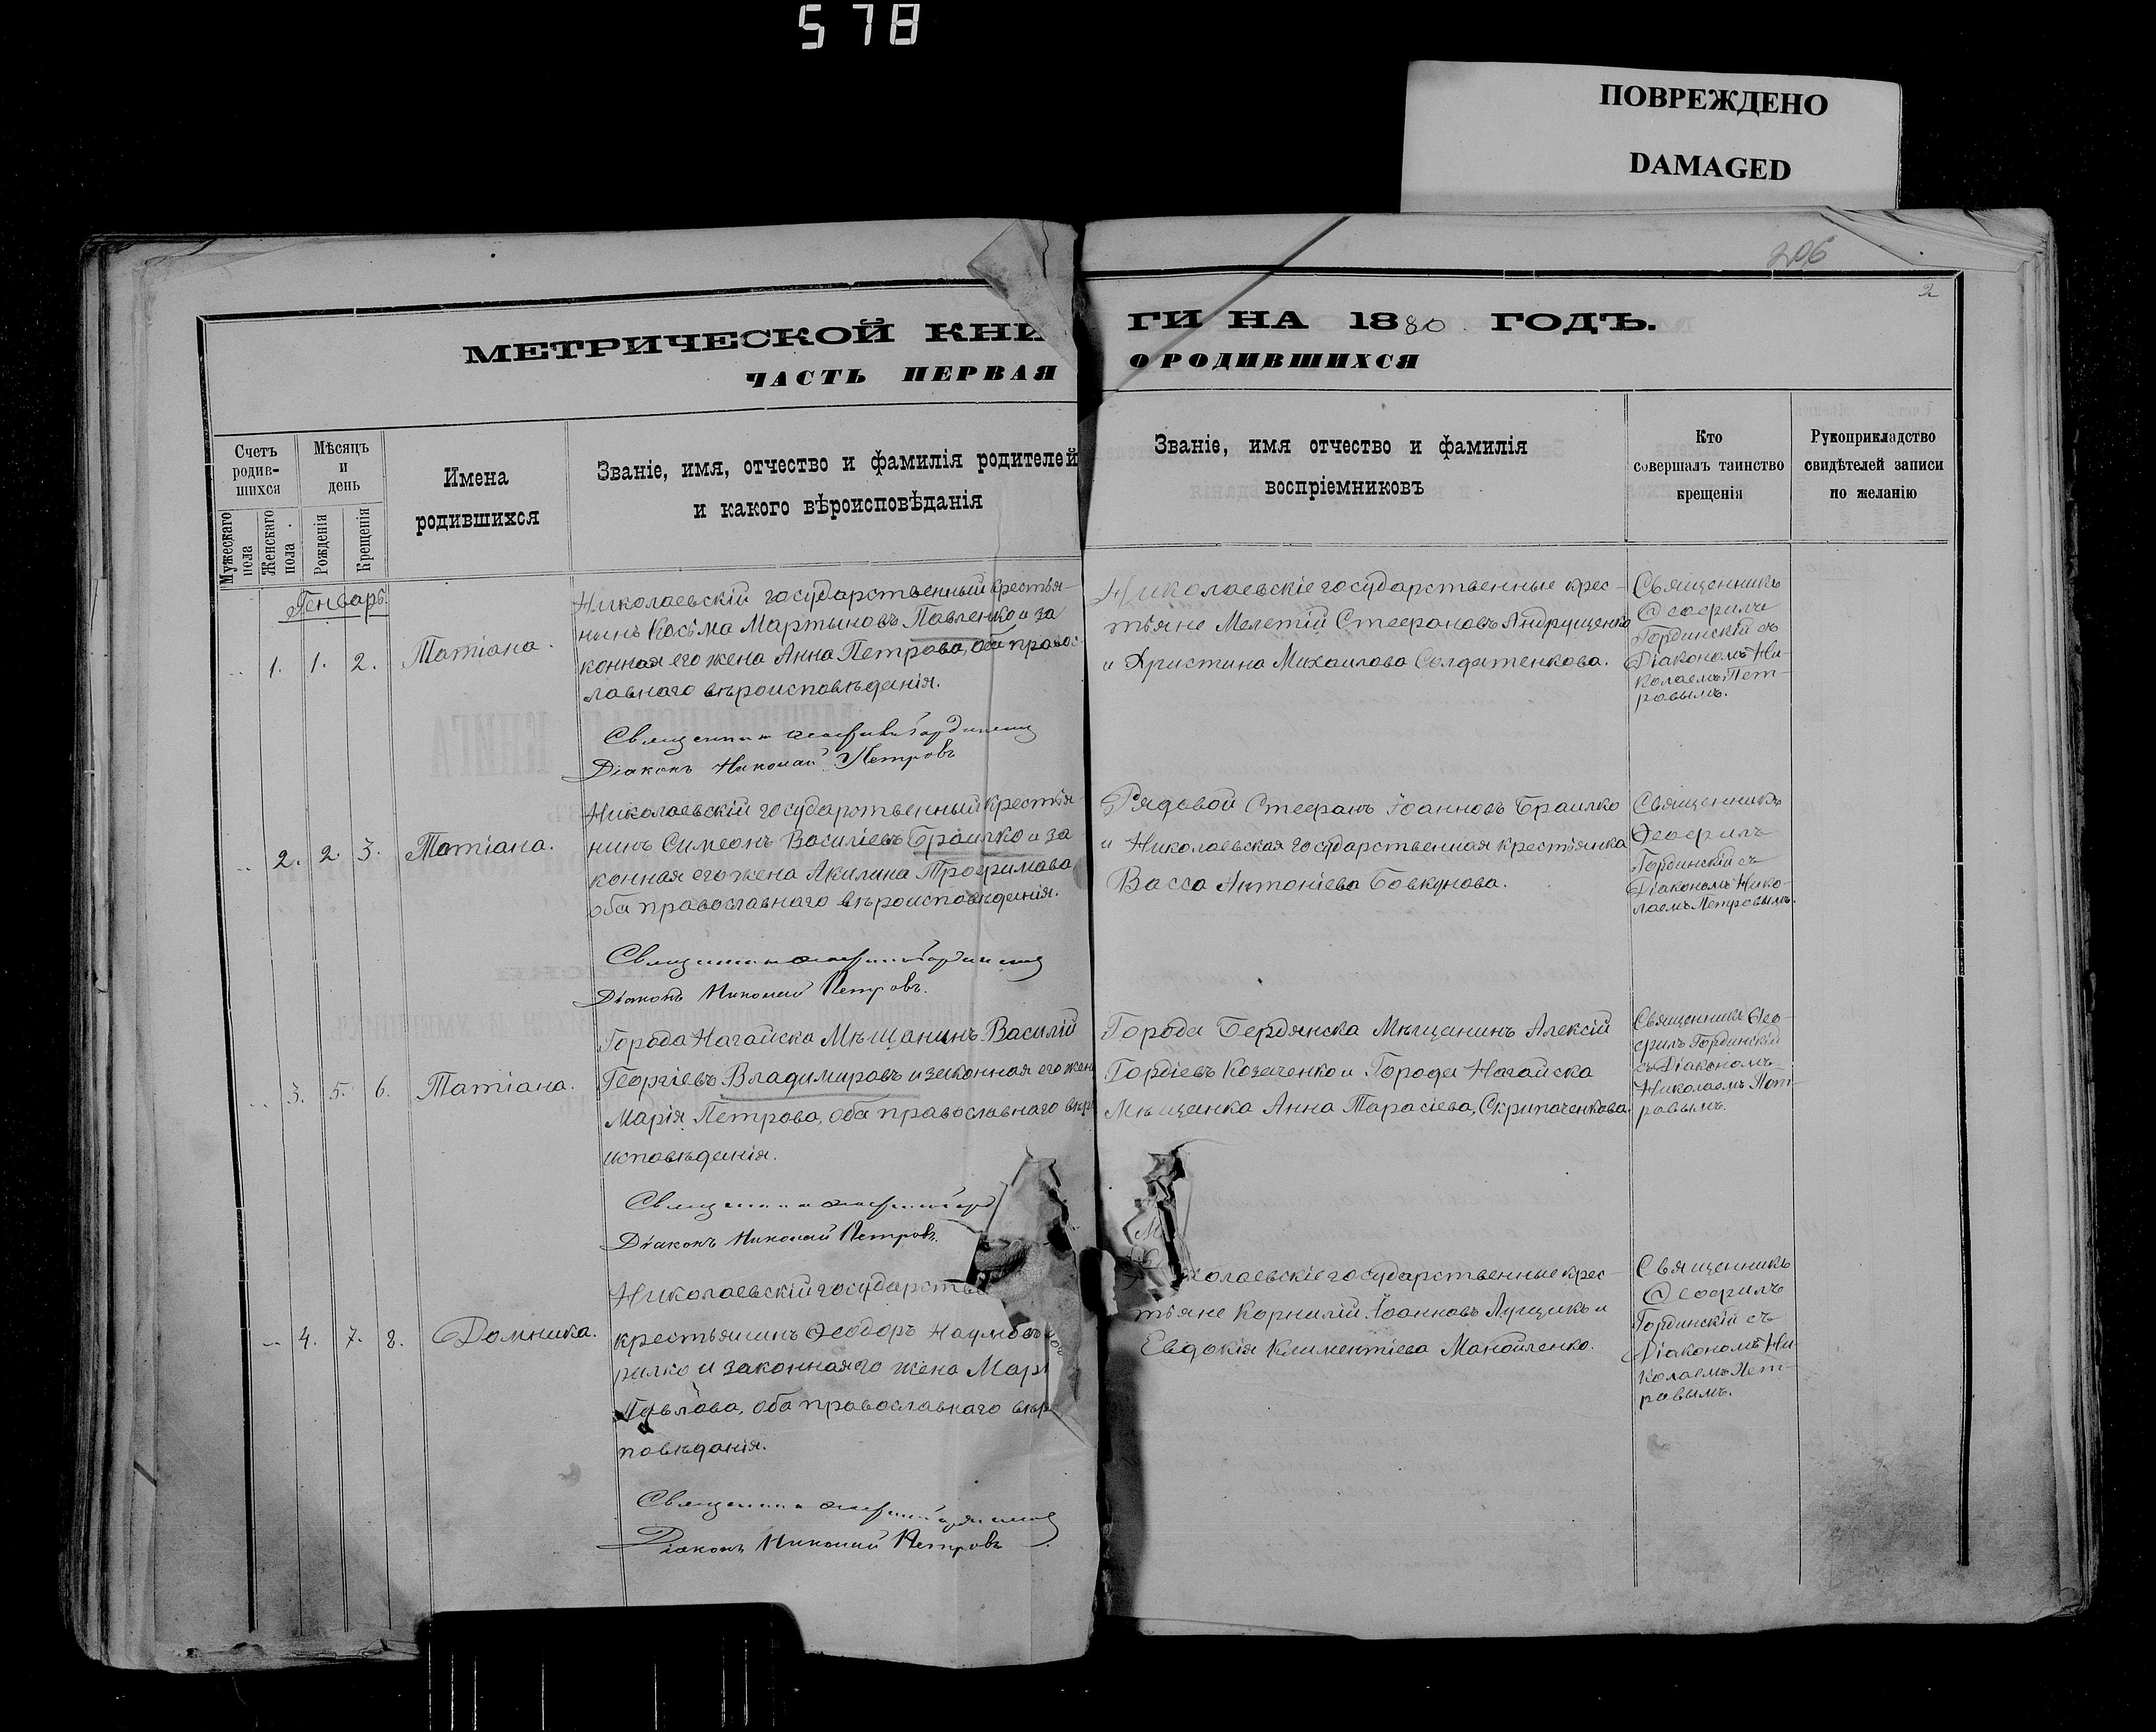 578
ПОВРЕЖДЕНО
DAMAGED
206
2
МЕТРИЧЕСКОЙ КНИ ГИ НА 1880 ГОДЪ.
ЧАСТЬ ПЕРВАЯ О РОДИВШИХСЯ
Счетъ родив- шихся
Мужескаго пола
Женскаго пола.
Мѣсяцъ и день
Рожденія
Крещенія
Имена родившихся
Званіе, имя, отчество и фамилія родителей
и какого вѣроисповѣданія
Званіе, имя отчество и фамилія
воспріемниковъ
Кто
совершалъ таинство
крещенія
Рукоприкладство
свидѣтелей записи
по желанію
Генварь.
1. 1. 2. Татіана.
Николаевскій государственный крестья-
нинъ Косьма Мартыновъ Павленко и за
конная его жена Анна Петрова, оба правос-
лавнаго вѣроисповѣданія.
Священникъ Ѳеофилъ Гординскій
Діаконъ Николай Петровъ
Николаевскіе государственные крес-
тьяне Мелетій Стефановъ Андрущенко
и Христина Михаилова Солдатенкова.
Священникъ
Ѳеофилъ
Гординскій съ
Діакономъ Ни-
колаемъ Пет-
ровымъ.
2. 2. 3. Татіана.
Николаевскій государственный крестья-
нинъ Симеонъ Василіевъ Браилко и за
конная его жена Акилина Трофимова
оба православнаго вѣроисповѣданія.
Священникъ Ѳеофилъ Гординскій
Діаконъ Николай Петровъ.
Рядовой Стефанъ Іоанновъ Браилко
и Николаевская государственная крестьянка
Васса Антоніева Бовкунова.
Священникъ
Ѳеофилъ
Гординскій съ
Діакономъ Нико-
лаемъ Петровымъ.
3. 5. 6. Татіана.
Города Нагайска Мѣщанинъ Василій
Георгіевъ Владимировъ и законная его жен
Марія Петрова, оба православнаго вѣр
исповѣданія.
Священникъ Ѳеофилъ Горд
Діаконъ Николай Петровъ.
Города Бердянска Мѣщанинъ Алексій
Гордіевъ Козаченко и Города Нагайска
Мѣщанка Анна Тарасіева, Скрипаченкова.
Священникъ Ѳео-
филъ Гординскій
съ Діакономъ
Николаемъ Пет-
ровымъ.
4. 7. 8. Домника.
Николаевскій государстве
крестьянинъ Ѳеодоръ Наумовъ
рилко и законная го жена Мар
Павлова, оба православнаго вѣр
повѣданія.
Священникъ Ѳеофилъ Гординскій
Діаконъ Николай Петровъ
колаевскіе государственные крес-
тьяне Корнилій Іоанновъ Лущикъ и
Евдокія Климентіева Манойленко.
Священникъ
Ѳеофилъ
Гординскій съ
Діакономъ Ни-
колаемъ Пет-
ровымъ.